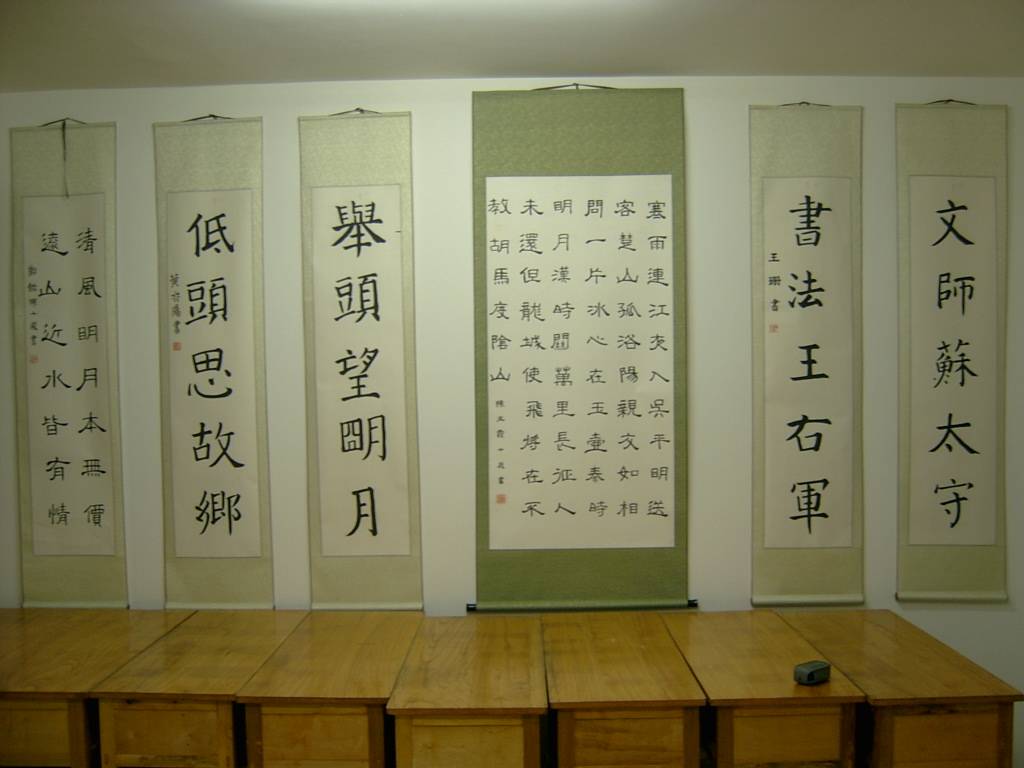 文師蘇太守
書法王右軍
王珊書
寒雨連江夜入吳平明送
客楚山孤洛陽親友如相
問一片冰心在玉壺秦時
明月漢時關萬里長征人
未還但龍城使飛將在不
教胡馬度陰山
舉頭望明月
低頭思故鄉
清風明月本無價
遠山近水皆有情